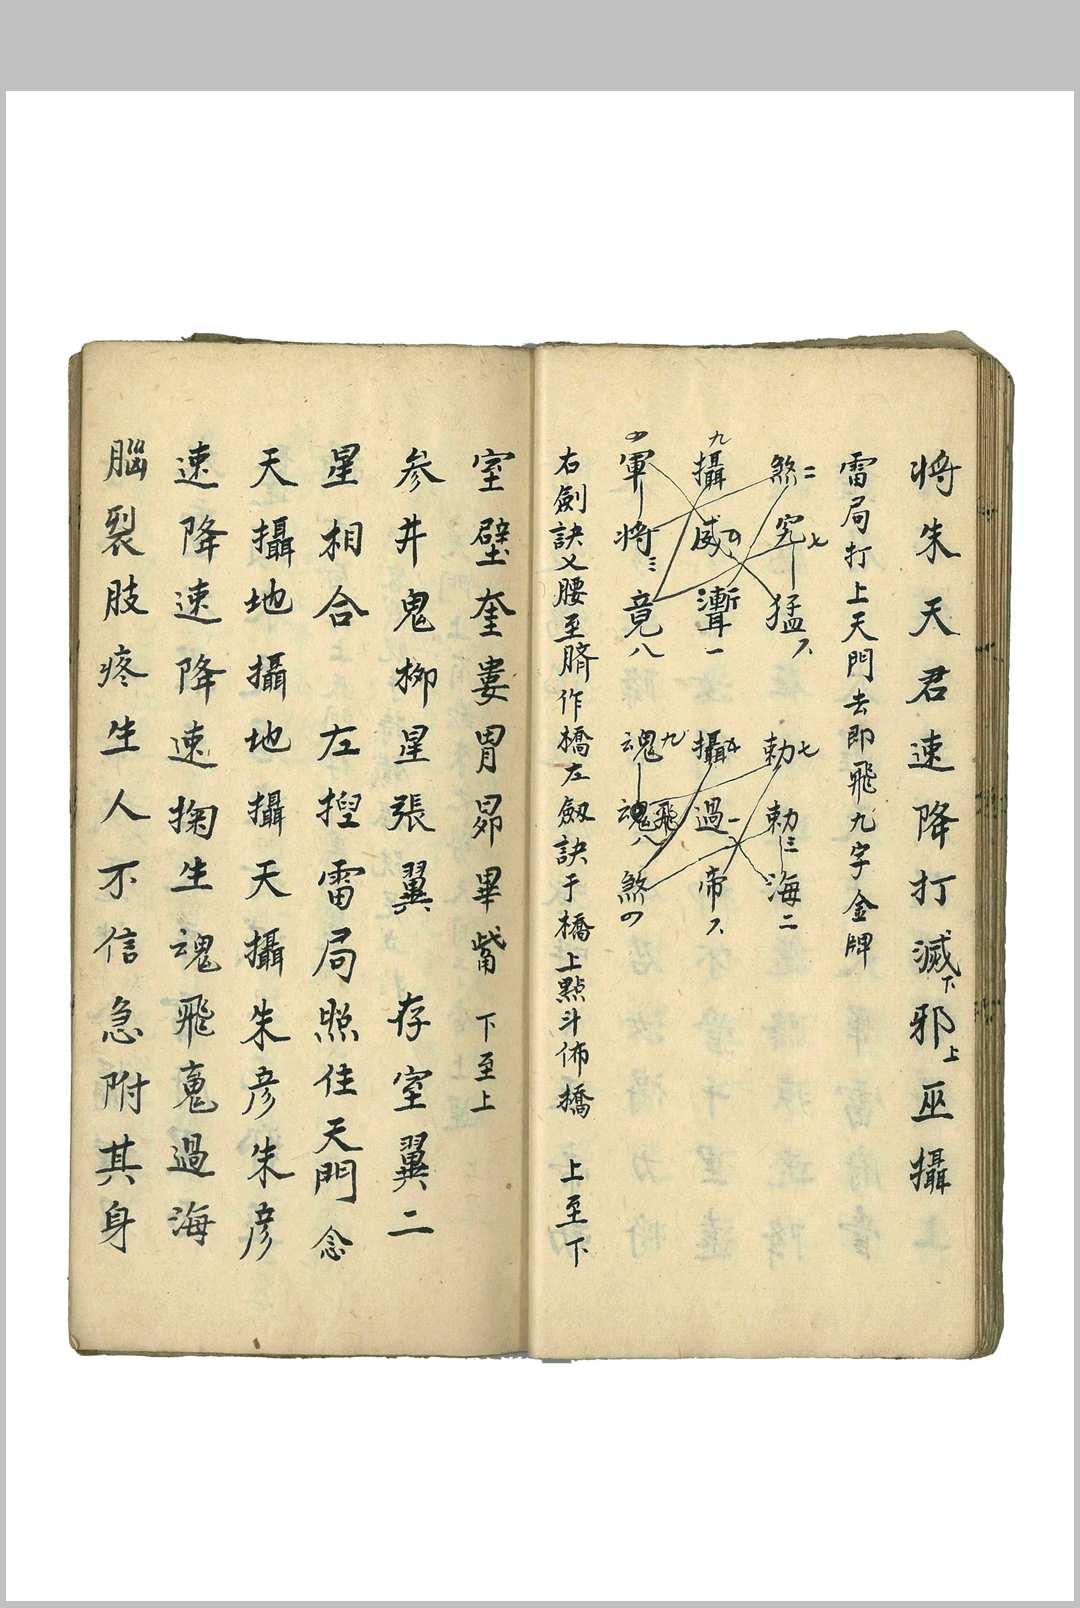 将朱天君速降打滅下邪上巫攝
雷局打上天門去即飛九字金牌
煞二究七猛六 勅七勅三海二
九攝威四聻一 攝五過一帝六
軍将三竟八 魂九魂八飛煞四
右劍訣义腰至臍作橋左劔訣于橋上點斗佈橋 上至下
室壁奎婁胃昴畢觜 下至上
参井鬼柳星張翼 存室翼二
星相合 左揑雷局照住天門念
天攝地攝地攝天攝朱彦朱彦
速降速降速掬生魂飛鬼過海
腦裂肢疼生人不信急附其身